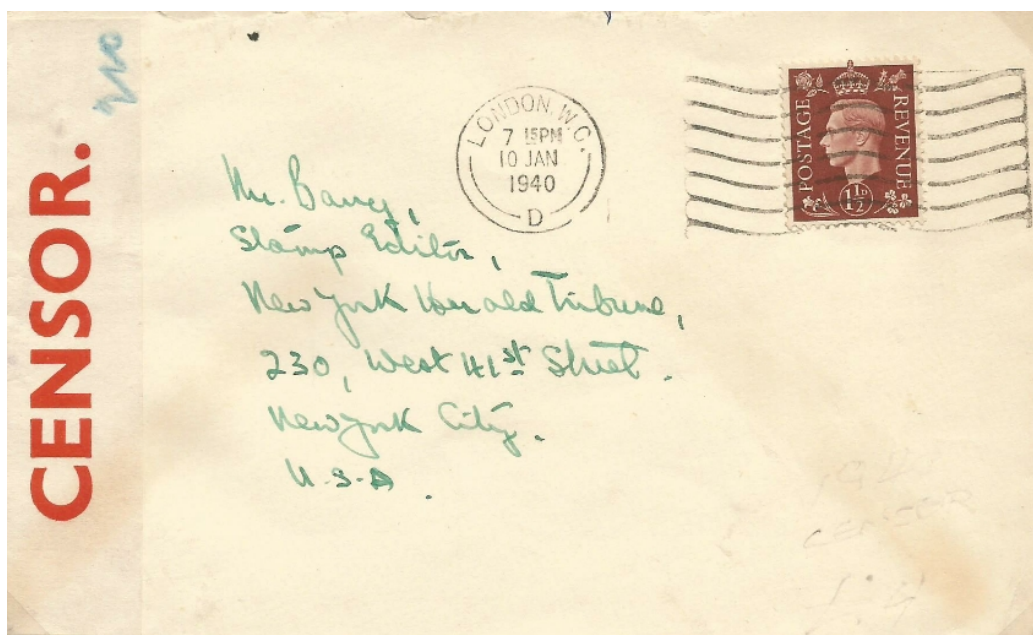 CENSOR.
LONDON, W.C.
7 15PM
10 JAN
1940
D
POSTAGE REVENUE
1½D
Mr.
Stamp Editor,
New York Herald Tribune,
230, West 41st Street.
New York City.
U.S.A.
CENSOR